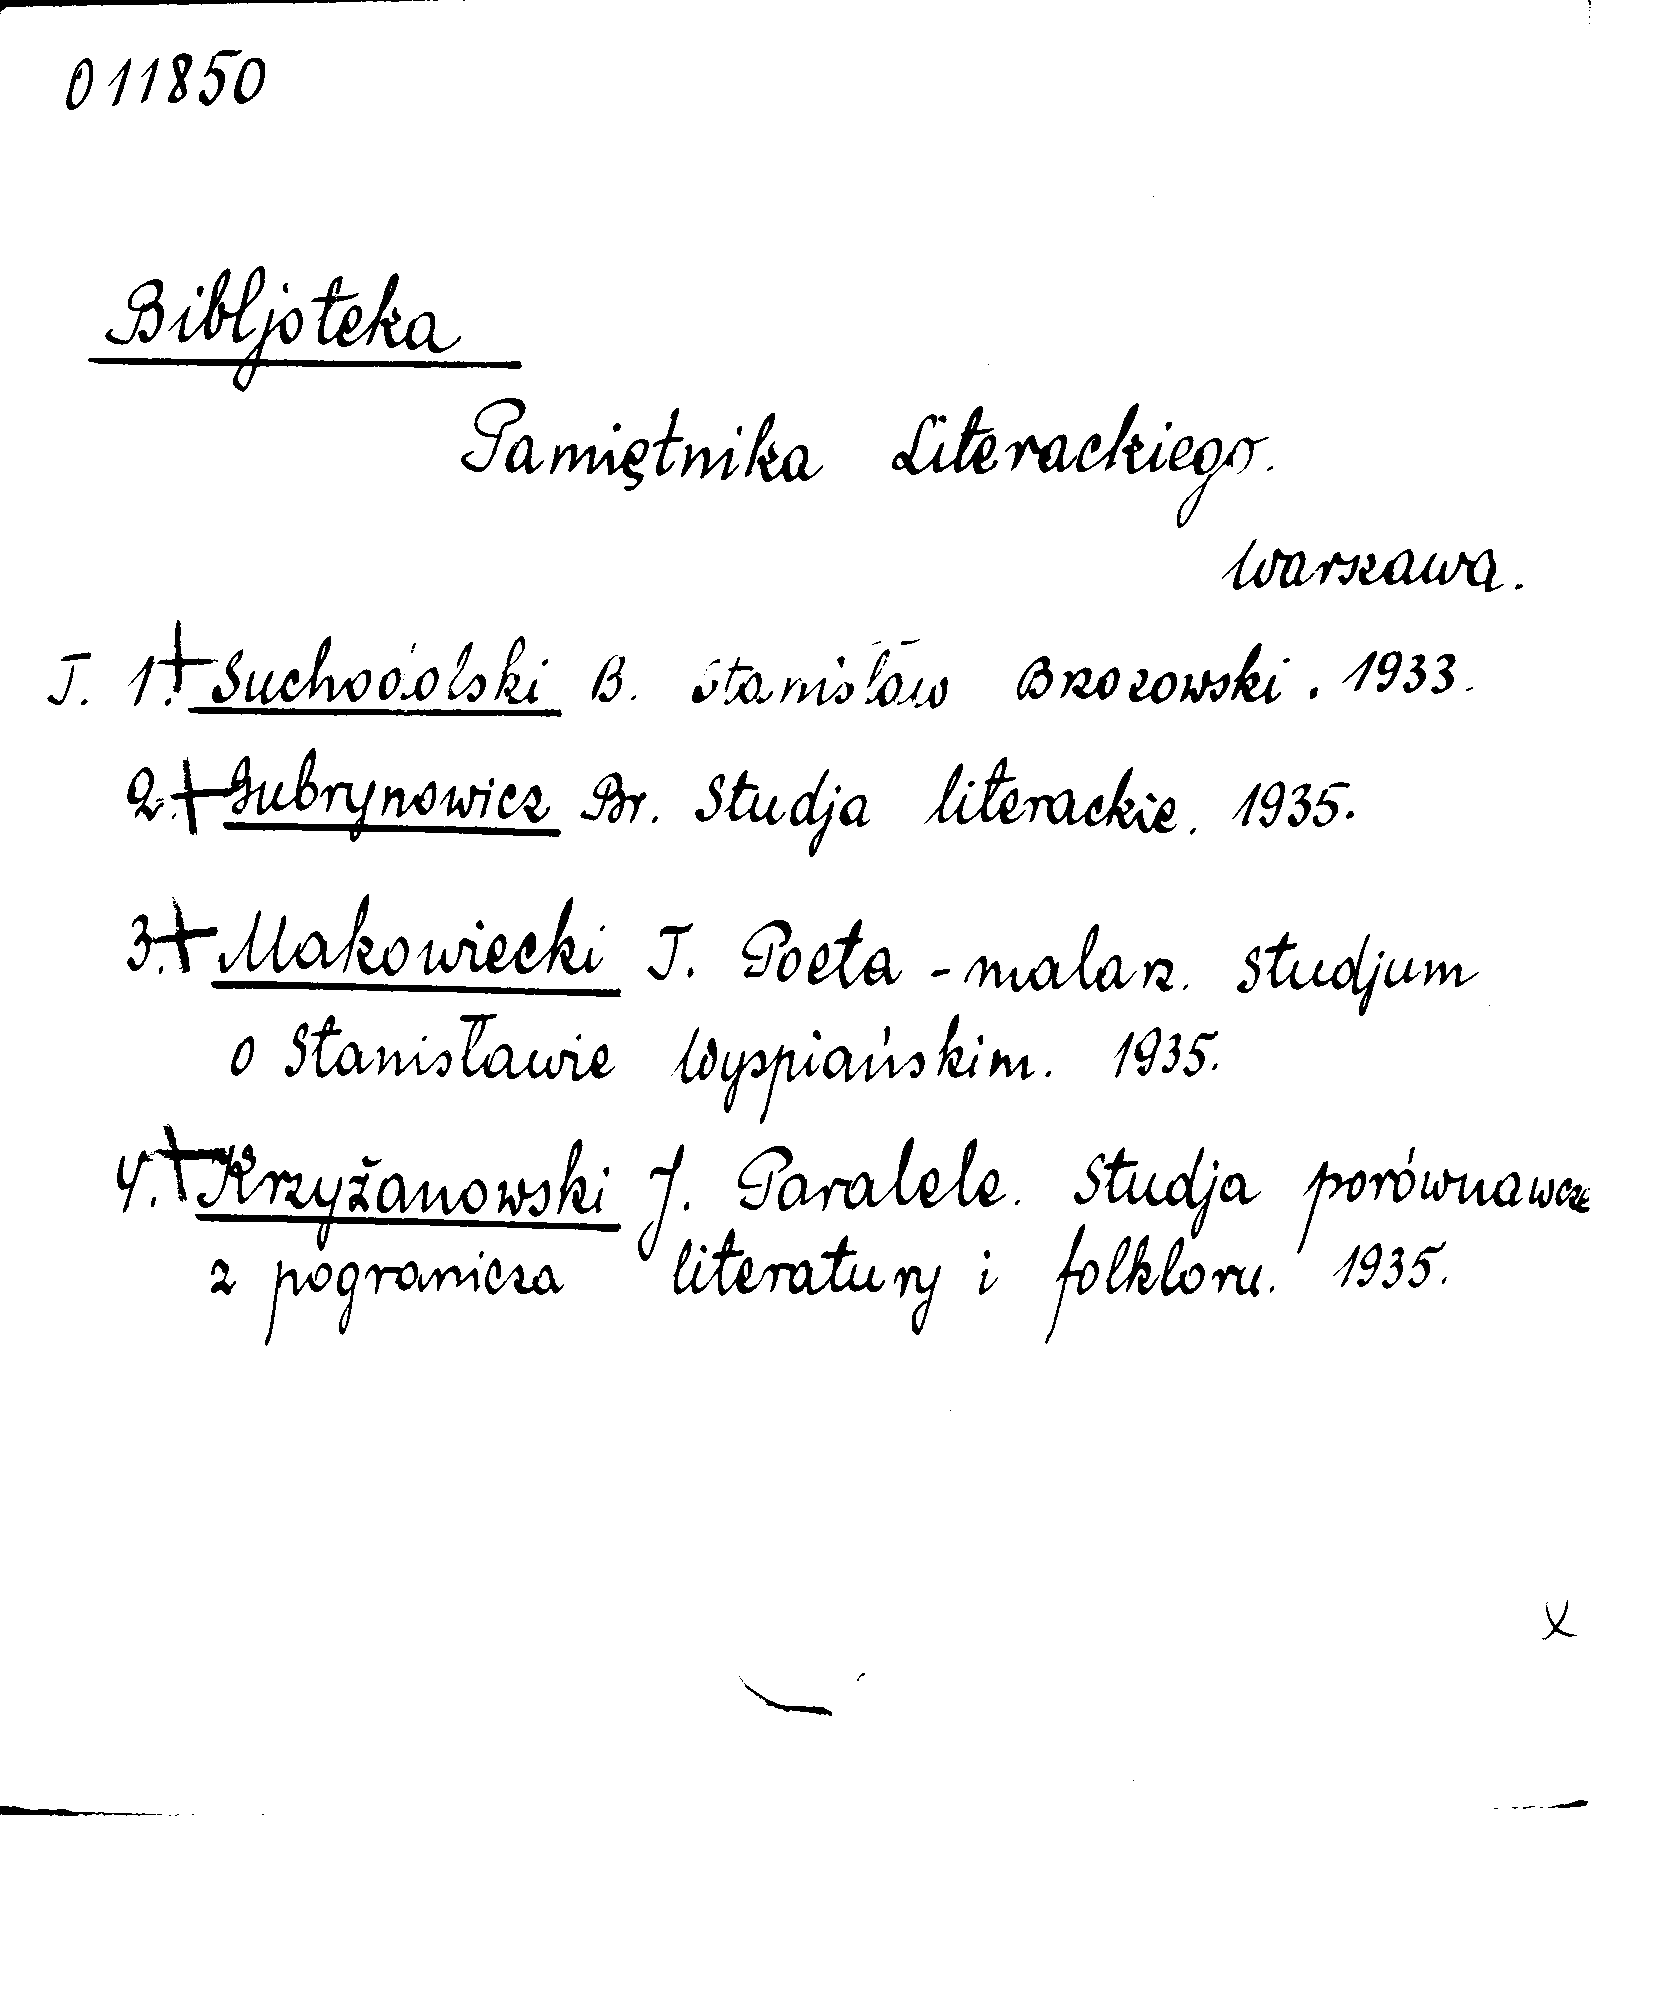 011850
Bibljoteka
Pamiętnika Literackiego.
Warszawa.
T. 1.+ Suchodolski B. Stanisław Brzozowski. 1933.
2.+ Gubrynowicz Br. Studja literackie. 1935.
3.+ Makowiecki T. Poeta - malarz. Studjum
o Stanisławie Wyspiańskim. 1935.
4.+ Krzyżanowski J. Paralele. Studja porównawcze
z pogranicza literatury i folkloru. 1935.
x